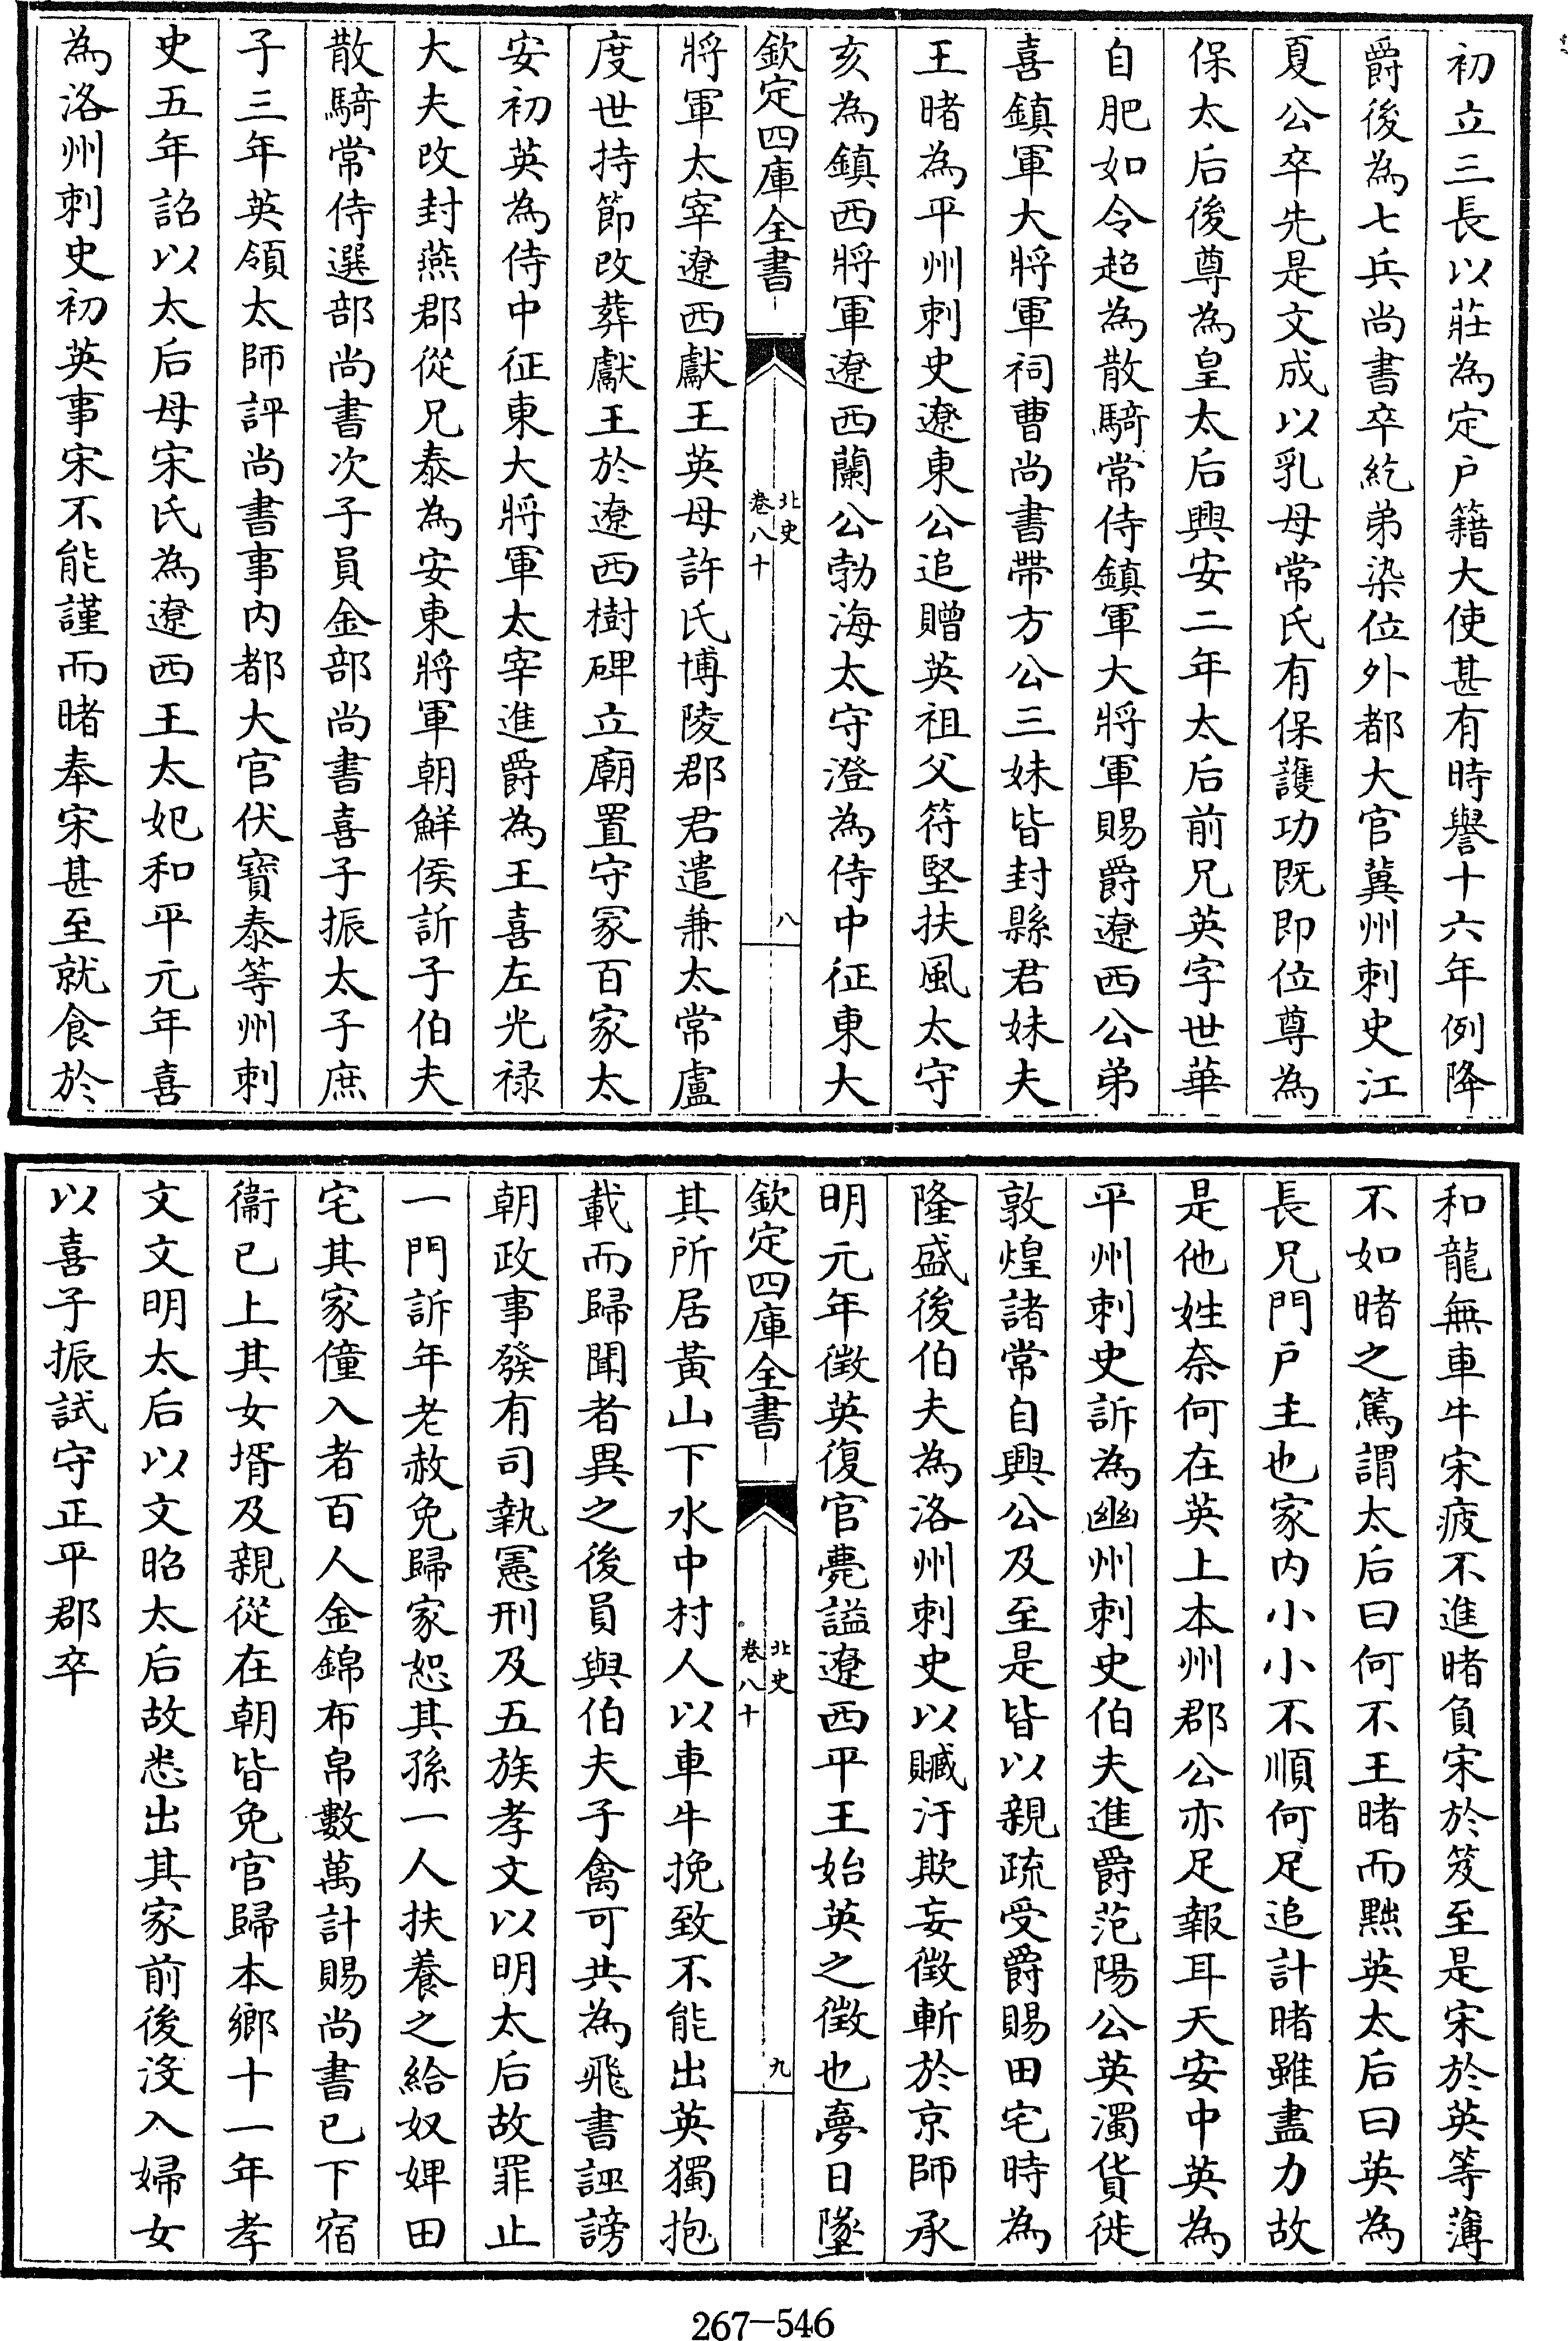 初立三長以莊為定户籍大使甚有時譽十六年例降
爵後為七兵尚書卒紇弟染位外都大官冀州刺史江
夏公卒先是文成以乳母常氏有保護功既即位尊為
保太后後尊為皇太后興安二年太后前兄英字世華
自肥如令超為散騎常侍鎮軍大將軍賜爵遼西公弟
喜鎮軍大將軍祠曹尚書帶方公三妹皆封縣君妹夫
王睹為平州刺史遼東公追贈英祖父苻堅扶風太守
亥為鎮西將軍遼西蘭公勃海太守澄為侍中征東大
欽定四庫全書
北史
卷八十
八
將軍太宰遼西獻王英母許氏博陵郡君遣兼太常盧
度世持節改葬獻王於遼西樹碑立廟置守冢百家太
安初英為侍中征東大將軍太宰進爵為王喜左光禄
大夫改封燕郡從兄泰為安東將軍朝鮮侯訢子伯夫
散騎常侍選部尚書次子員金部尚書喜子振太子庶
子三年英領太師評尚書事内都大官伏寶泰等州刺
史五年詔以太后母宋氏為遼西王太妃和平元年喜
為洛州刺史初英事宋不能謹而睹奉宋甚至就食於
和龍無車牛宋疲不進睹負宋於笈至是宋於英等薄
不如睹之篤謂太后曰何不王睹而黜英太后曰英為
長兄門户主也家内小小不順何足追計睹雖盡力故
是他姓奈何在英上本州郡公亦足報耳天安中英為
平州刺史訢為幽州刺史伯夫進爵范陽公英濁貨徙
敦煌諸常自興公及至是皆以親疏受爵賜田宅時為
隆盛後伯夫為洛州刺史以贓汙欺妄徵斬於京師承
明元年徵英復官薨謚遼西平王始英之徵也夢日墜
欽定四庫全書
北史
卷八十
九
其所居黃山下水中村人以車牛挽致不能出英獨抱
載而歸聞者異之後員與伯夫子禽可共為飛書誣謗
朝政事發有司執憲刑及五族孝文以明太后故罪止
一門訢年老赦免歸家恕其孫一人扶養之給奴婢田
宅其家僮入者百人金錦布帛數萬計賜尚書已下宿
衞已上其女壻及親從在朝皆免官歸本鄉十一年孝
文文明太后以文昭太后故悉出其家前後沒入婦女
以喜子振試守正平郡卒
267-546